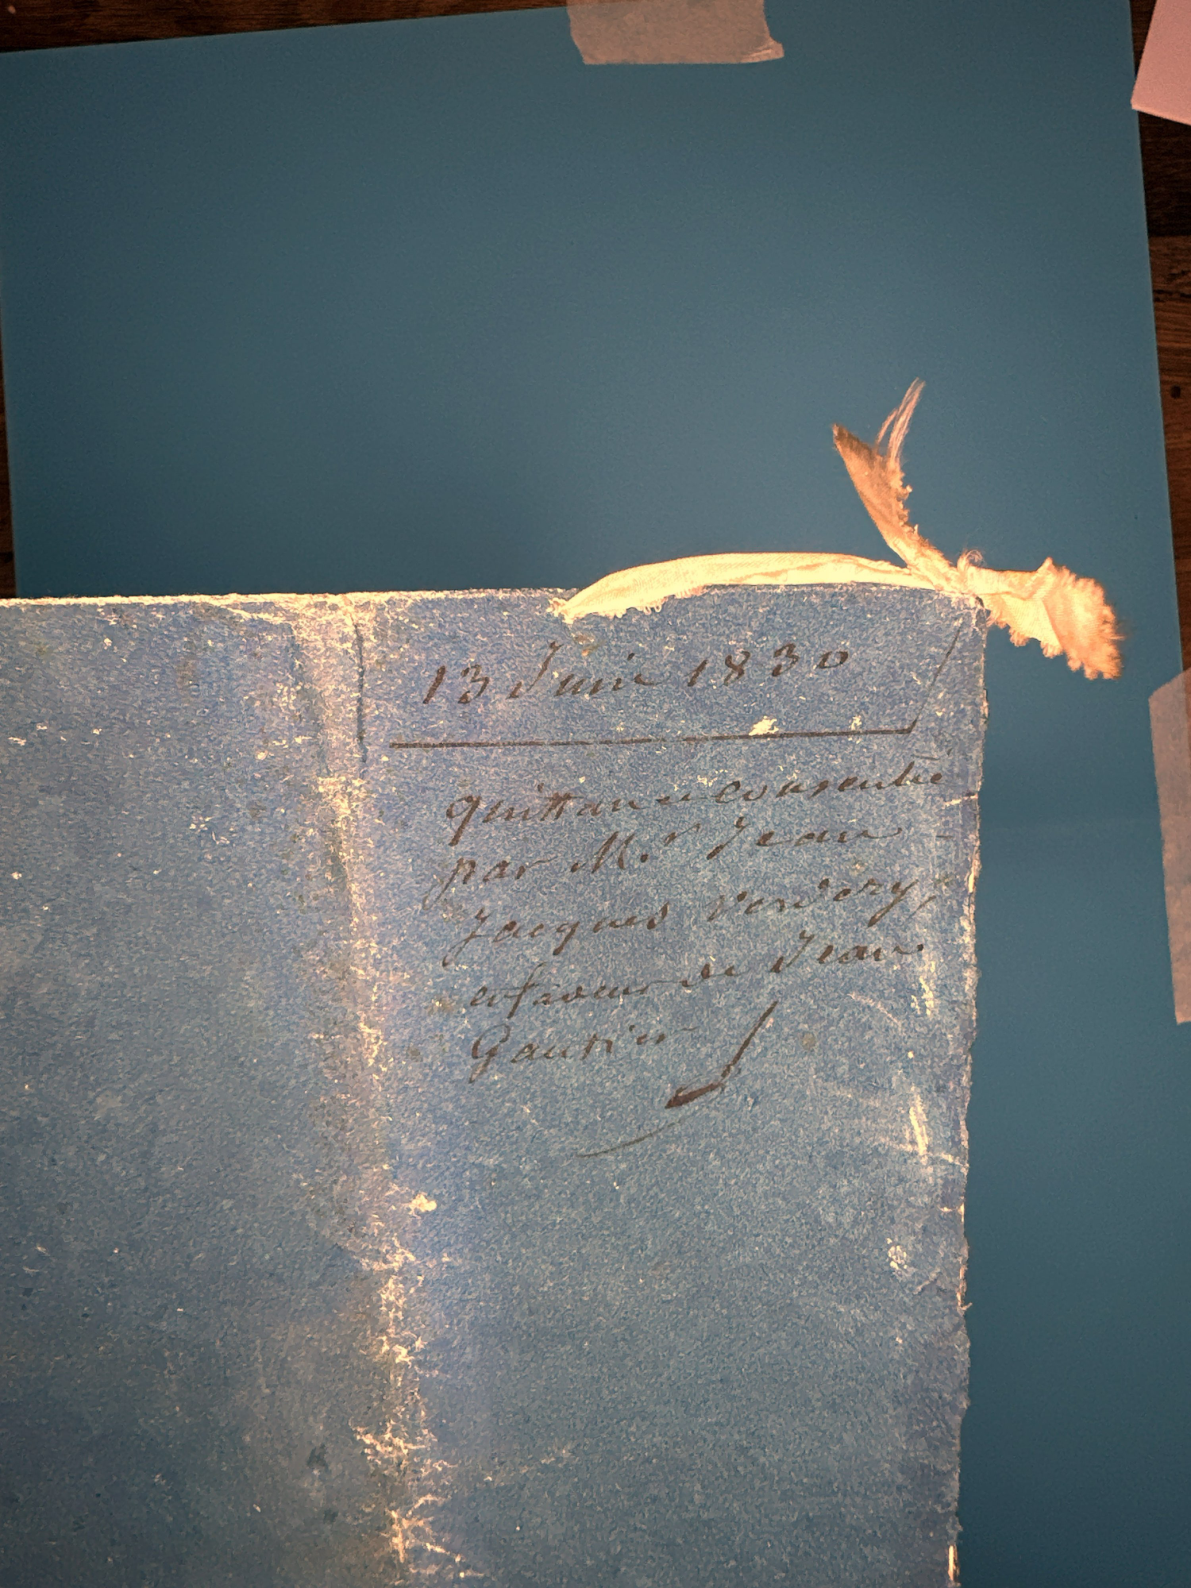 13 Juin 1830
quittance consentie
par M.r Jean
Jacques Verdery,
en faveur de Jean
Gautier